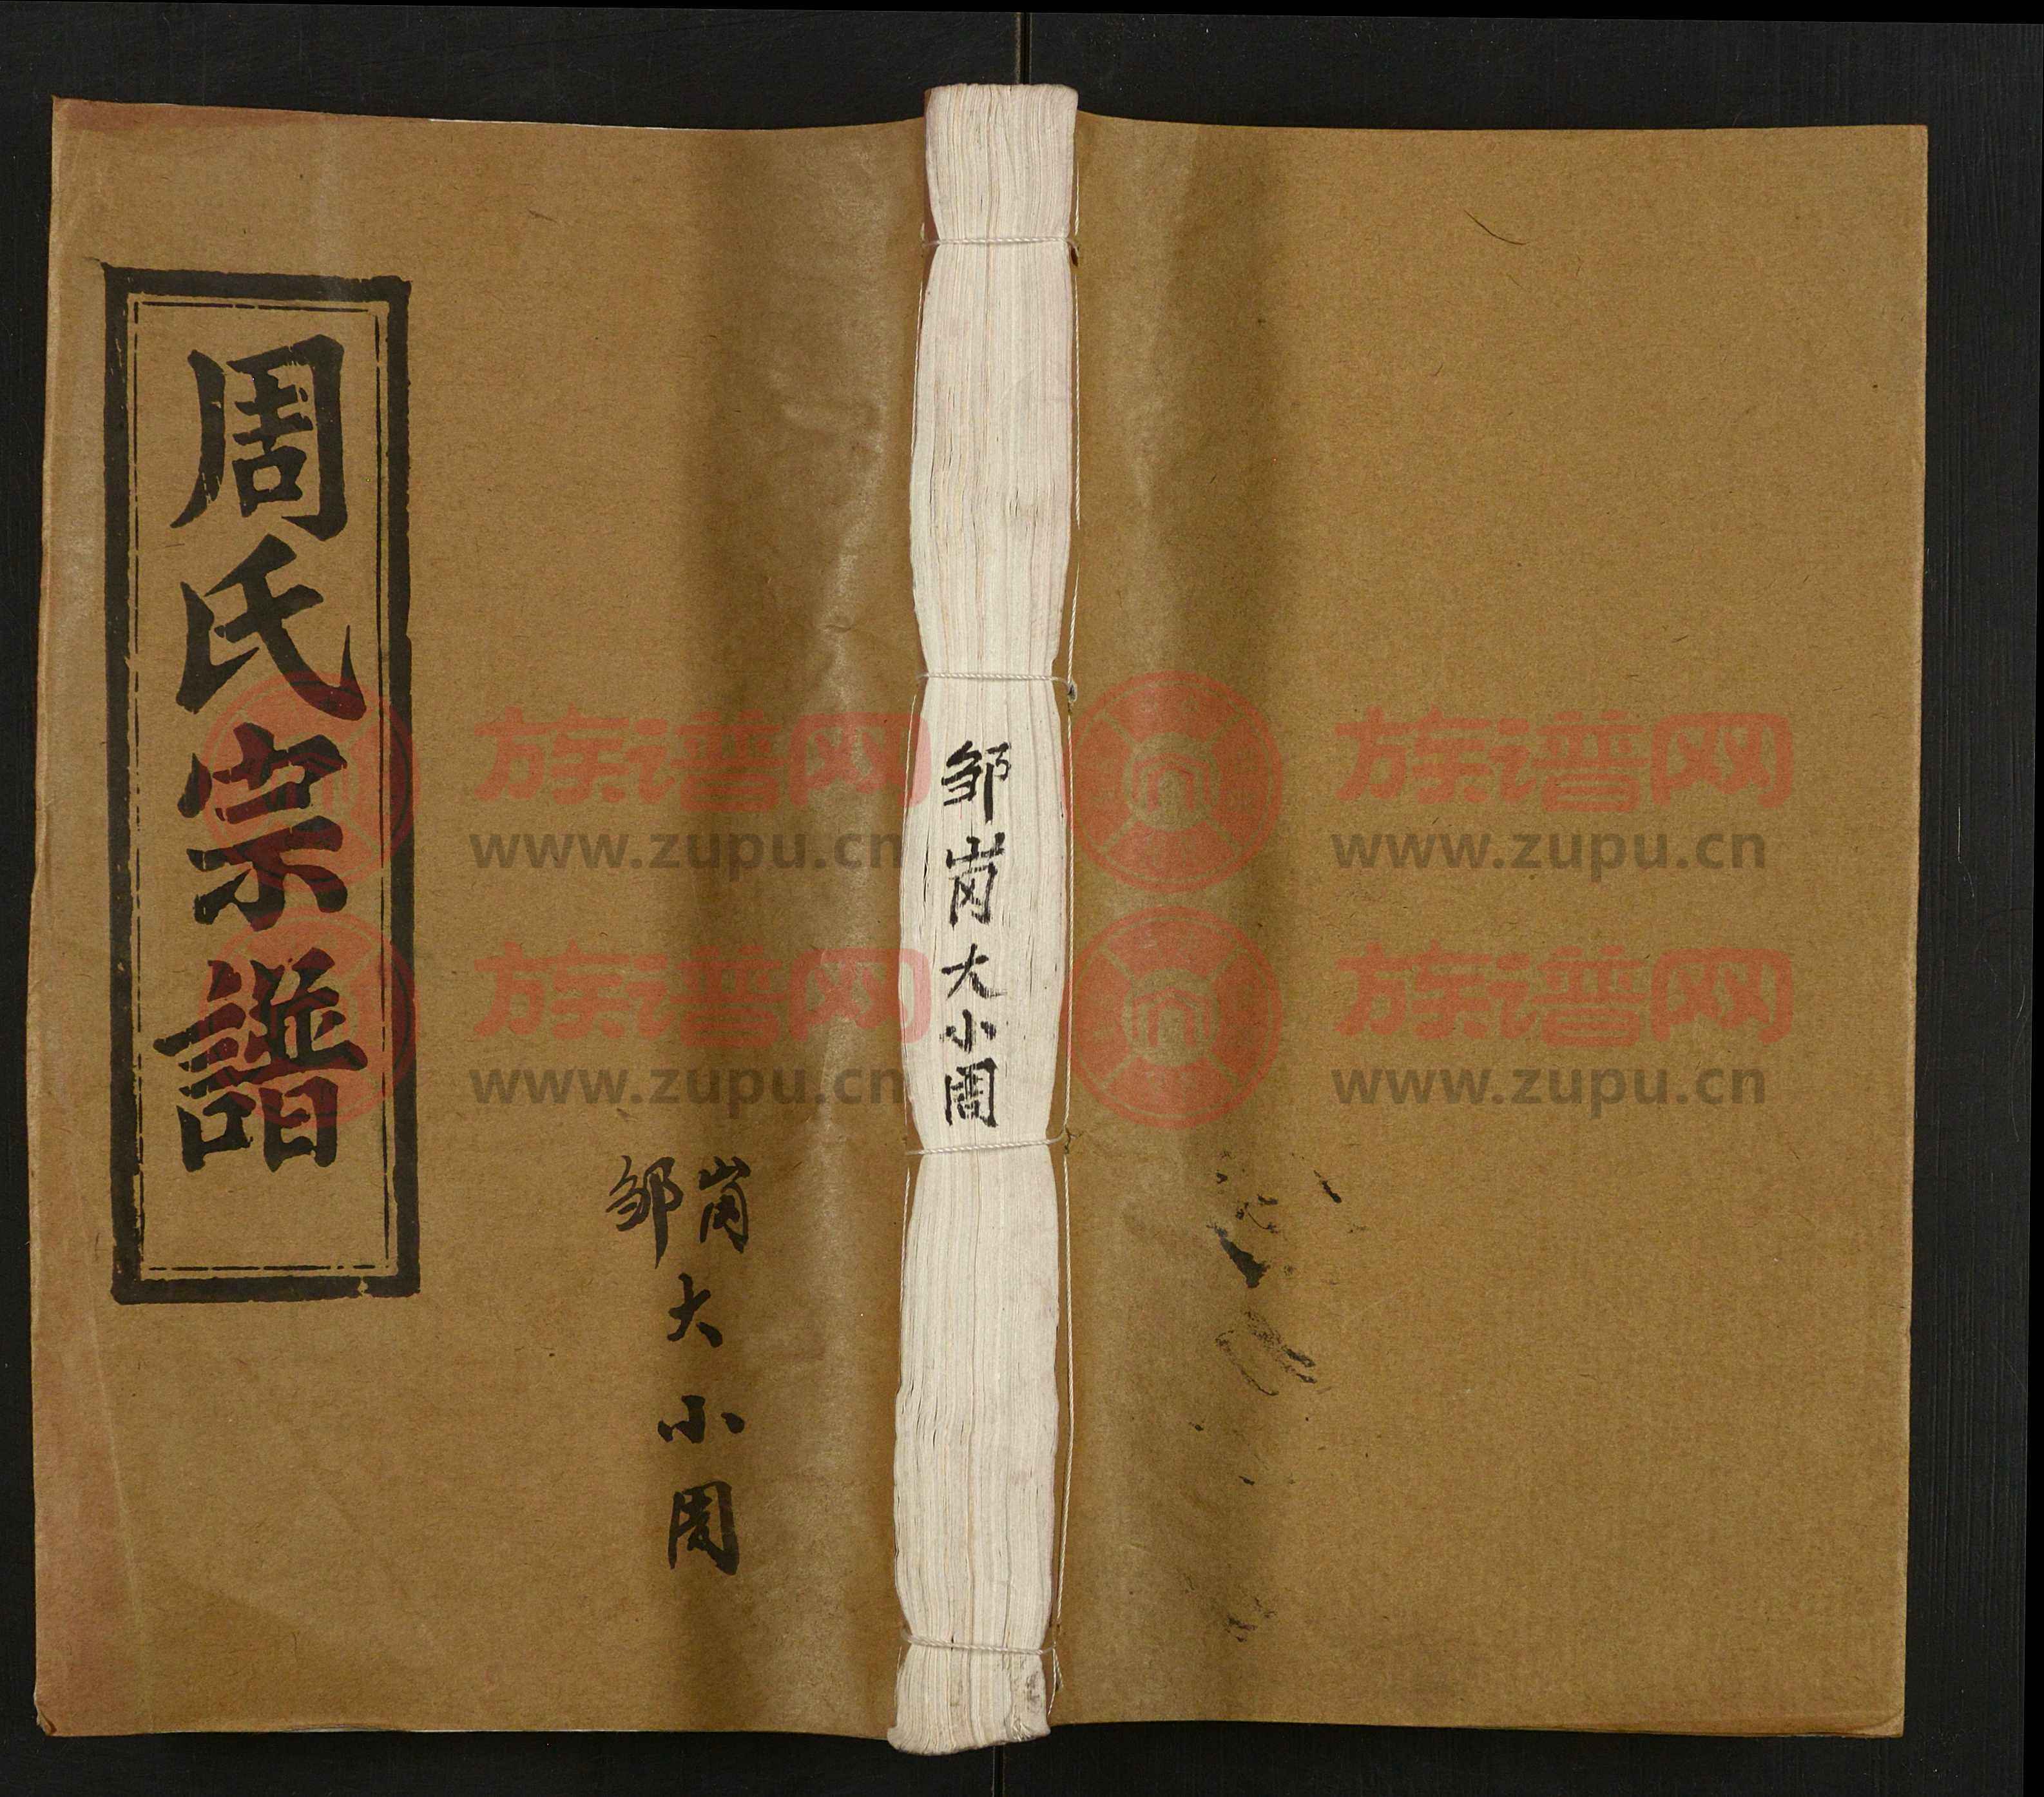 周氏宗譜
邹岗
大小周
邹岗大小周
族谱网
www.zupu.cn
族谱网
www.zupu.cn
族谱网
www.zupu.cn
族谱网
www.zupu.cn